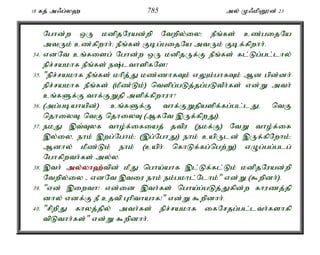 18 கத் அஃப்லஹ 785 அல் முஃமினூன் 23
போன்ற ஒரு மனிதரேயன்றி வேறில்லை; நீங்கள் உண்பதையே
அவரும் உண்கிறார்; நீங்கள் குடிப்பதையே அவரும் குடிக்கிறார்.
34. எனவே உங்களைப் போன்ற ஒரு மனிதருக்கு நீங்கள் கட்டுப்பட்டால்
நிச்சயமாக நீங்கள் நஷ்டவாளிகளே!
35. "நிச்சயமாக நீங்கள் மரித்து மண்ணாகவும் எலும்பாகவும் ஆன பின்னர்
நிச்சயமாக நீங்கள் (மீண்டும்) வெளிப்படுத்தப்படுவீர்கள் என்று அவர்
உங்களுக்கு வாக்குறுதி அளிக்கிறாரா?
36. (அப்படியாயின்) உங்களுக்கு வாக்குறுதியளிக்கப்பட்டது, வெகு
தொலைவு வெகு தொலைவு (ஆகவே இருக்கிறது).
37. நமது இவ்வுலக வாழ்க்கையைத் தவிர (நமக்கு) வேறு வாழ்க்கை
இல்லை. நாம் இறப்போம்; (இப்போது) நாம் உயிருடன் இருக்கிறோம்;
ஆனால் மீண்டும் நாம் (உயிர் கொடுக்கப்பெற்று) எழுப்பப்படப்
போகிறவர்கள் அல்ல.
38. இவர் அல்லாஹ்வின் மீது பொய்யாக இட்டுக்கட்டும் மனிதரேயன்றி
வேறில்லை . எனவே இவரை நாம் நம்பமாட்டோம்" என்று (கூறினர்).
39. "என் இறைவா! என்னை இவர்கள் பொய்ப்படுத்துகின்ற காரணத்தி
னால் எனக்கு நீ உதவி புரிவாயாக!" என்று கூறினார்.
40. "சிறிது காலத்தில் அவர்கள் நிச்சயமாக கைசேதப்பட்டவர்களாகி
விடுவார்கள்" என்று கூறினான்.